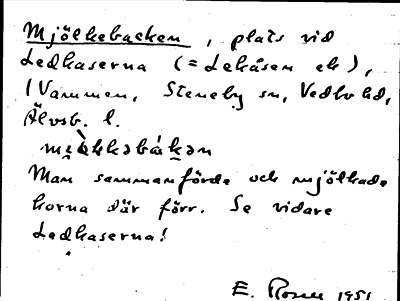 Mjölkebacken, plats vid
Ledhaserna (= Lekåsen ek),
I Vammen, Steneby sn, Vedbo hd,
Älvsb. l.
Man sammanförde och mjölkade
korna där förr. Se vidare
Ledhaserna!
E. Rosen 1951